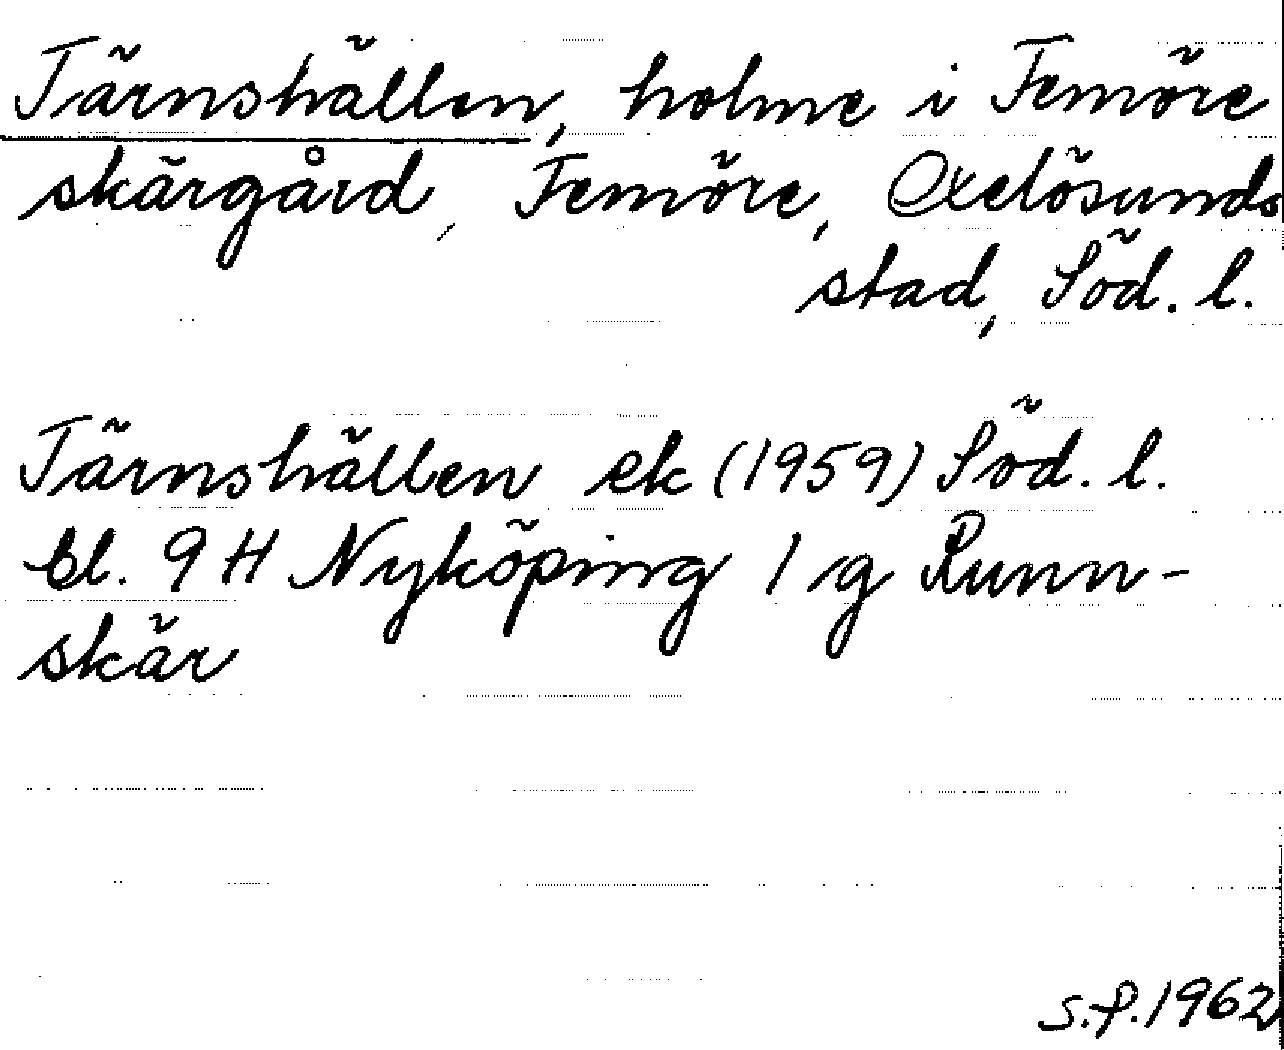 Tärnshällen, holme i Femöre
skärgård, Femöre, Oxelösunds
stad, Söd. l.
Tärnshällen ek (1959) Söd. l.
bl. 9 H Nyköping 1 g Runn-
skär
S.f. 1962